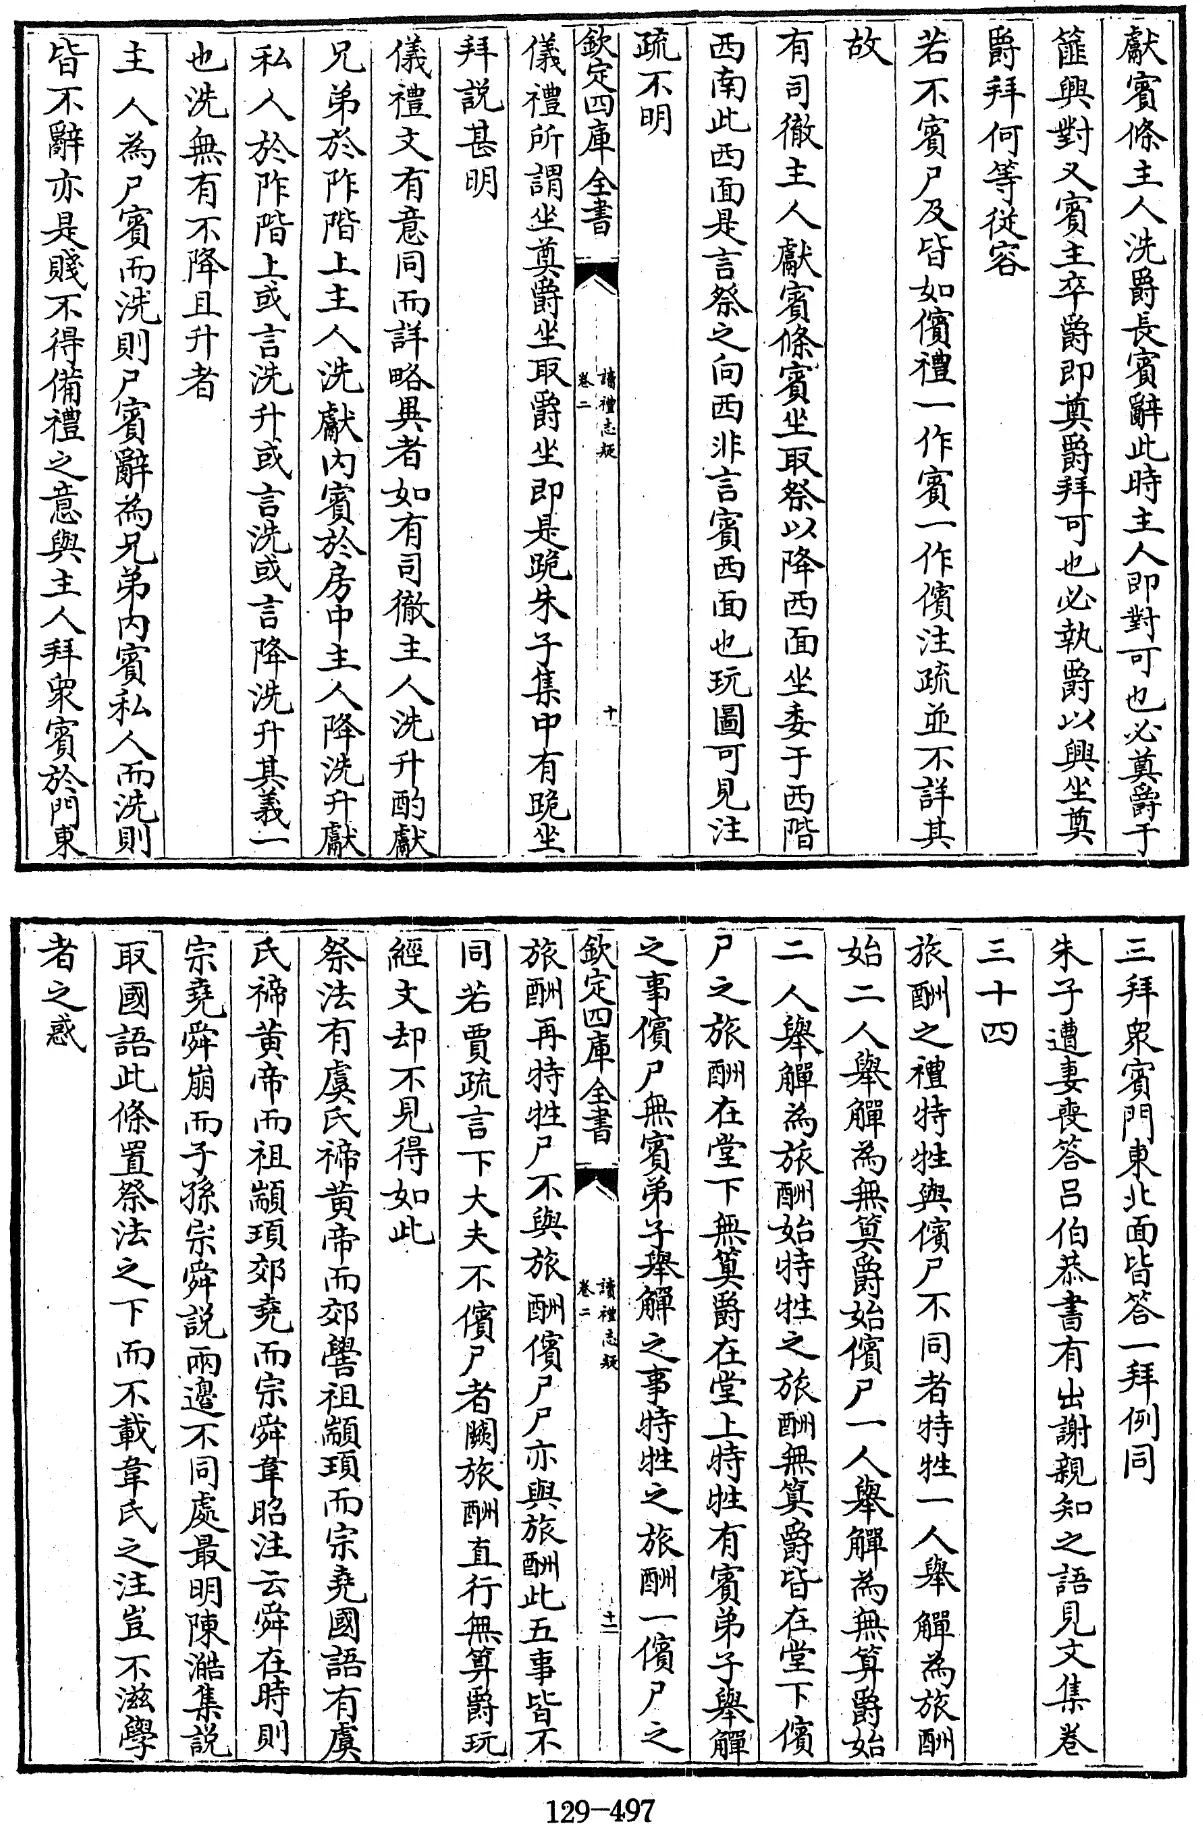 獻賓條主人洗爵長賓辭此時主人即對可也必奠爵于
篚興對又賓主卒爵即奠爵拜可也必執爵以興坐奠
爵拜何等從容
若不賓尸及皆如儐禮一作賓一作儐注疏並不詳其
故
有司徹主人獻賓條賓坐取祭以降西面坐委于西階
西南此西面是言祭之向西非言賓西面也玩圖可見注
疏不明
欽定四庫全書
讀禮志疑
卷二
十
儀禮所謂坐奠爵坐取爵坐即是跪朱子集中有跪坐
拜説甚明
儀禮文有意同而詳略異者如有司徹主人洗升酌獻
兄弟於阼階上主人洗獻内賓於房中主人降洗升獻
私人於阼階上或言洗升或言洗或言降洗升其義一
也洗無有不降且升者
主人為尸賓而洗則尸賓辭為兄弟内賓私人而洗則
皆不辭亦是賤不得備禮之意與主人拜衆賓於門東
三拜衆賓門東北面皆答一拜例同
朱子遭妻喪答呂伯恭書有出謝親知之語見文集卷
三十四
旅酬之禮特牲與儐尸不同者特牲一人舉觶為旅酬
始二人舉觶為無筭爵始儐尸一人舉觶為無算爵始
二人舉觶為旅酬始特牲之旅酬無筭爵皆在堂下儐
尸之旅酬在堂下無筭爵在堂上特牲有賓弟子舉觶
之事儐尸無賓弟子舉觶之事特牲之旅酬一儐尸之
欽定四庫全書
讀禮志疑
卷二
十一
旅酬再特牲尸不與旅酬儐尸尸亦與旅酬此五事皆不
同若賈疏言下大夫不儐尸者闕旅酬直行無算爵玩
經文却不見得如此
祭法有虞氏禘黄帝而郊嚳祖顓頊而宗堯國語有虞
氏禘黄帝而祖顓頊郊堯而宗舜韋昭注云舜在時則
宗堯舜崩而子孫宗舜説兩邊不同處最明陳澔集説
取國語此條置祭法之下而不載韋氏之注豈不滋學
者之惑
129-497